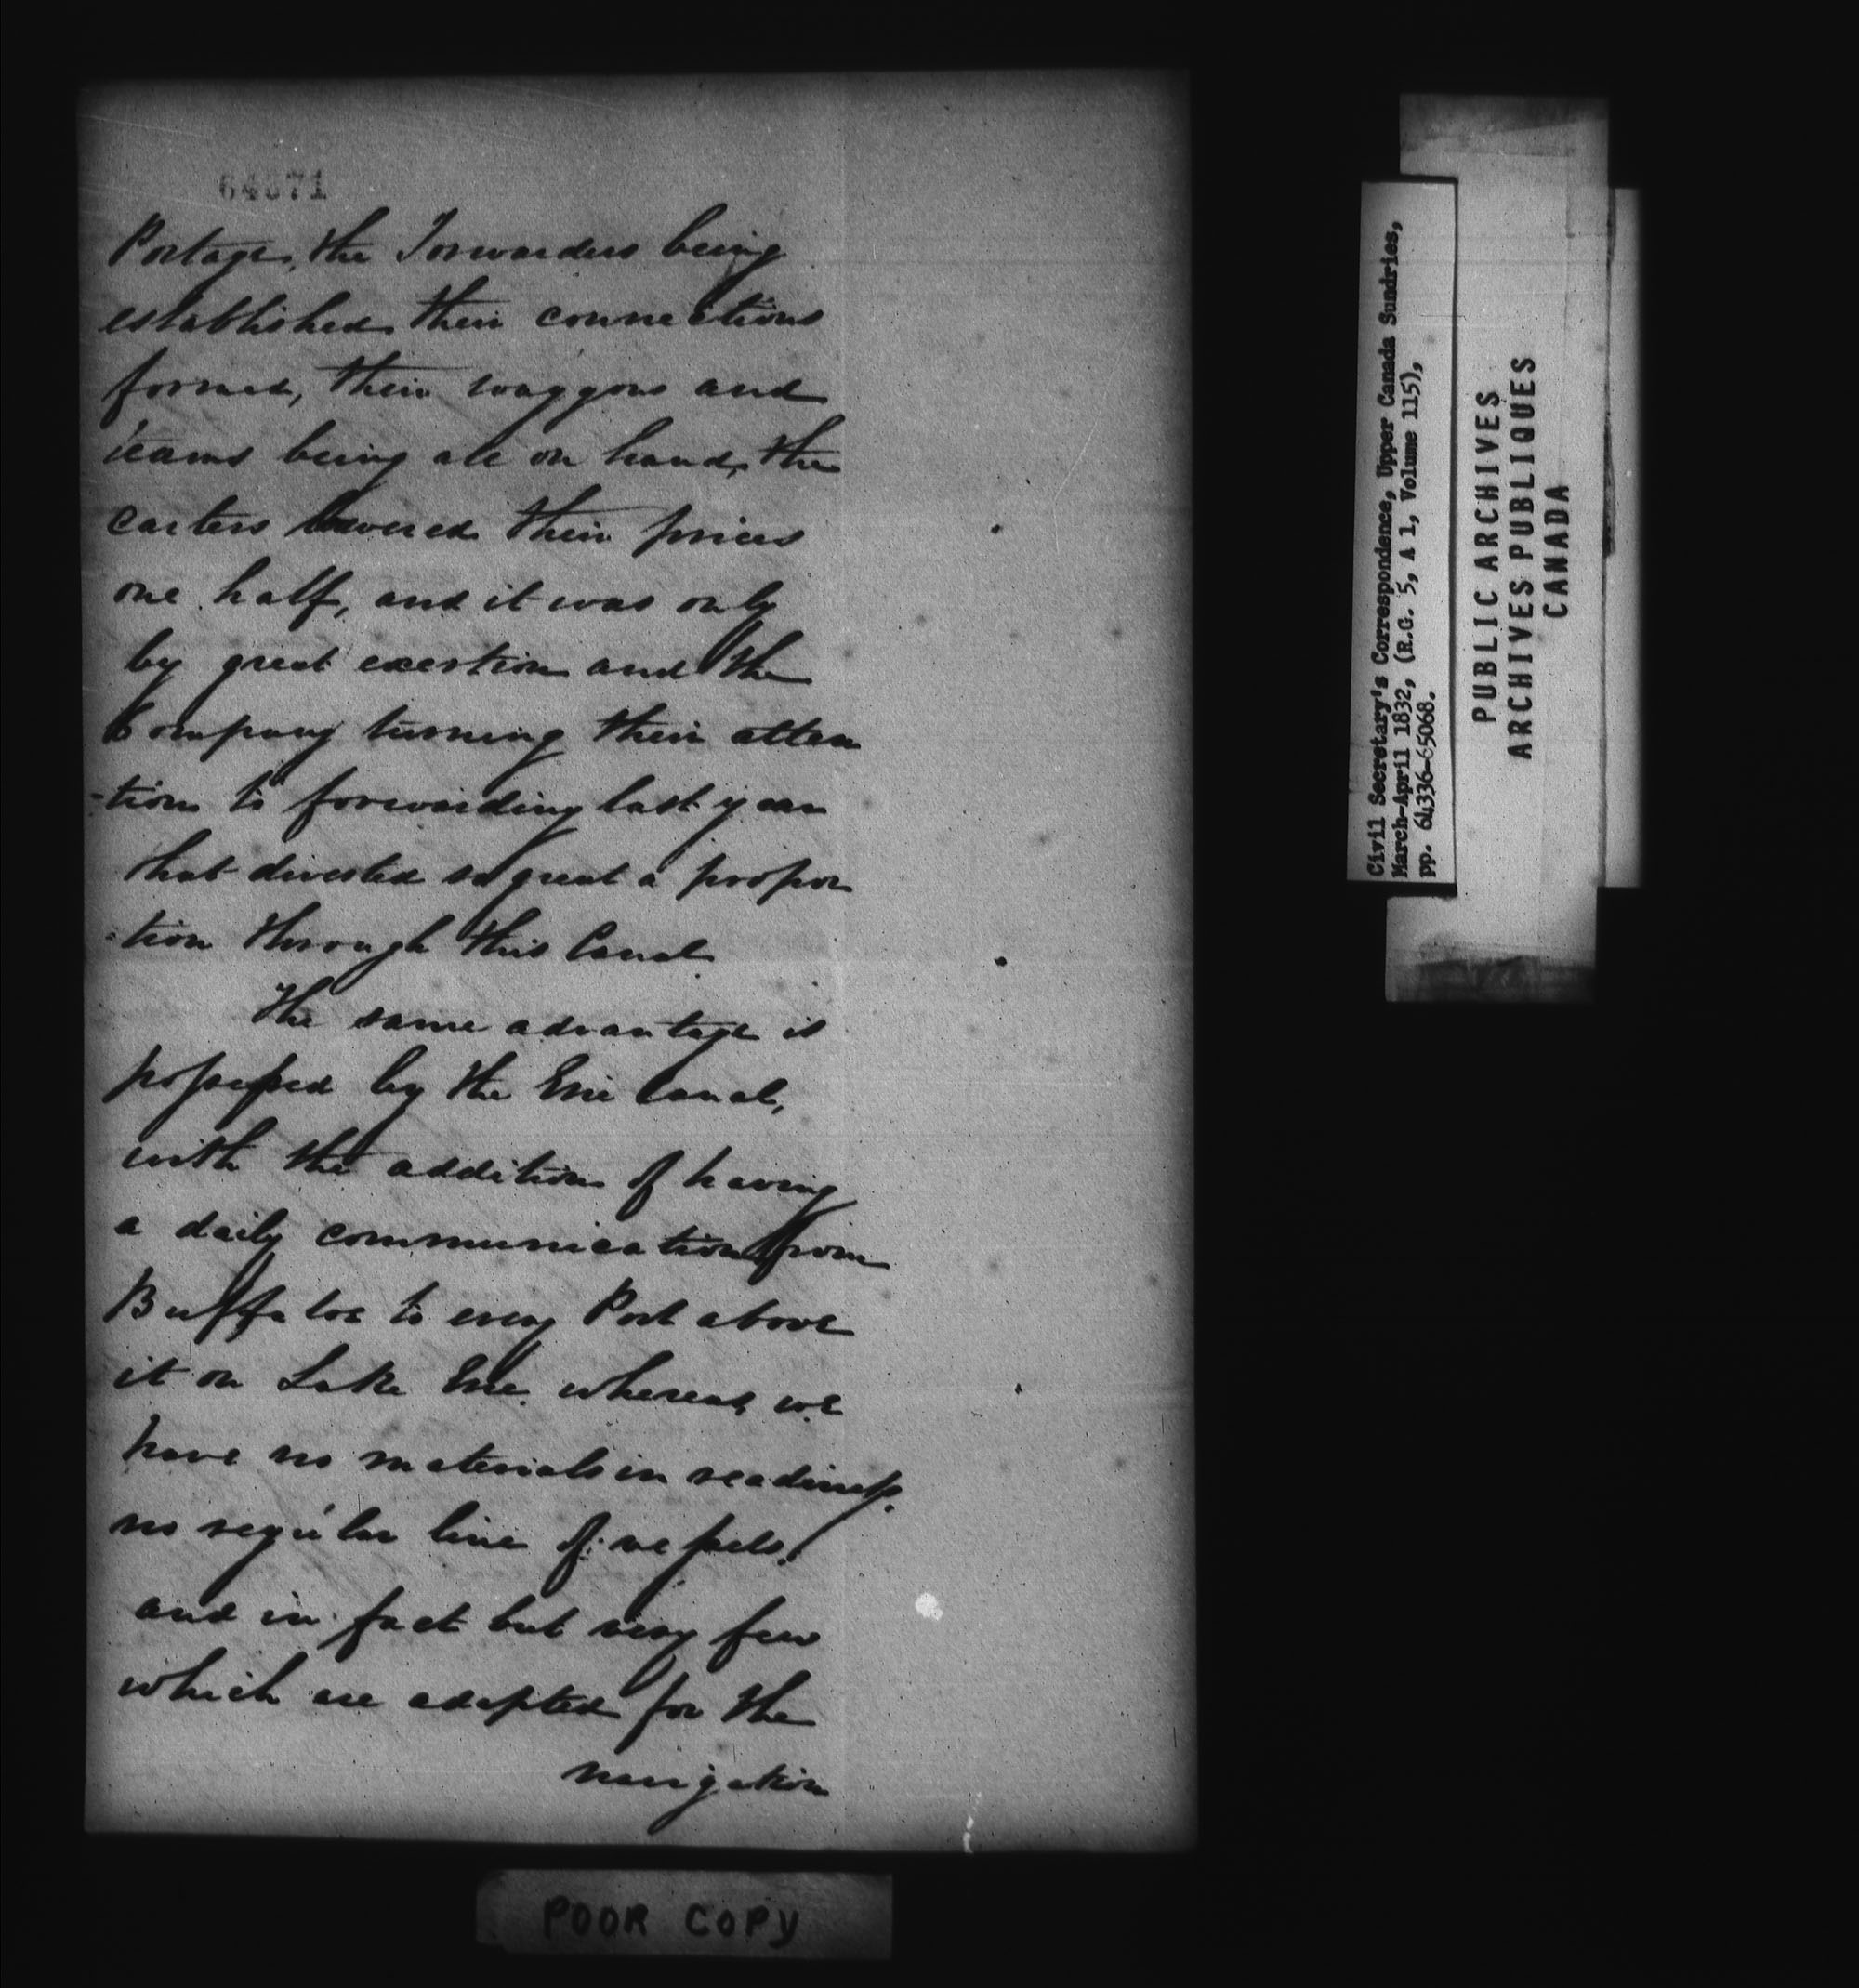 64671
Portage, the Forwarders being
established their connections
formed, their waggons and
teams being all on hand, the
carters lowered their prices
one half, and it was only
by great exertion and the
Company turning their atten
-tion to forwarding last year
that diverted so great a propor
-tion through this Canal
The same advantage is
possessed by the Erie Canal,
with the addition of having
a daily communication from
Buffaloe to every Port above
it on Lake Erie. whereas, we
have no materials in readiness.
no regular line of vessels.
and in fact but very few
which are adapted for the
navigation
POOR COPY
Civil Secretary's Correspondence, Upper Canada Sundries,
March-April 1832, (R.G. 5, A 1, Volume 115),
pp. 64336-65068.
PUBLIC ARCHIVES
ARCHIVES PUBLIQUES
CANADA